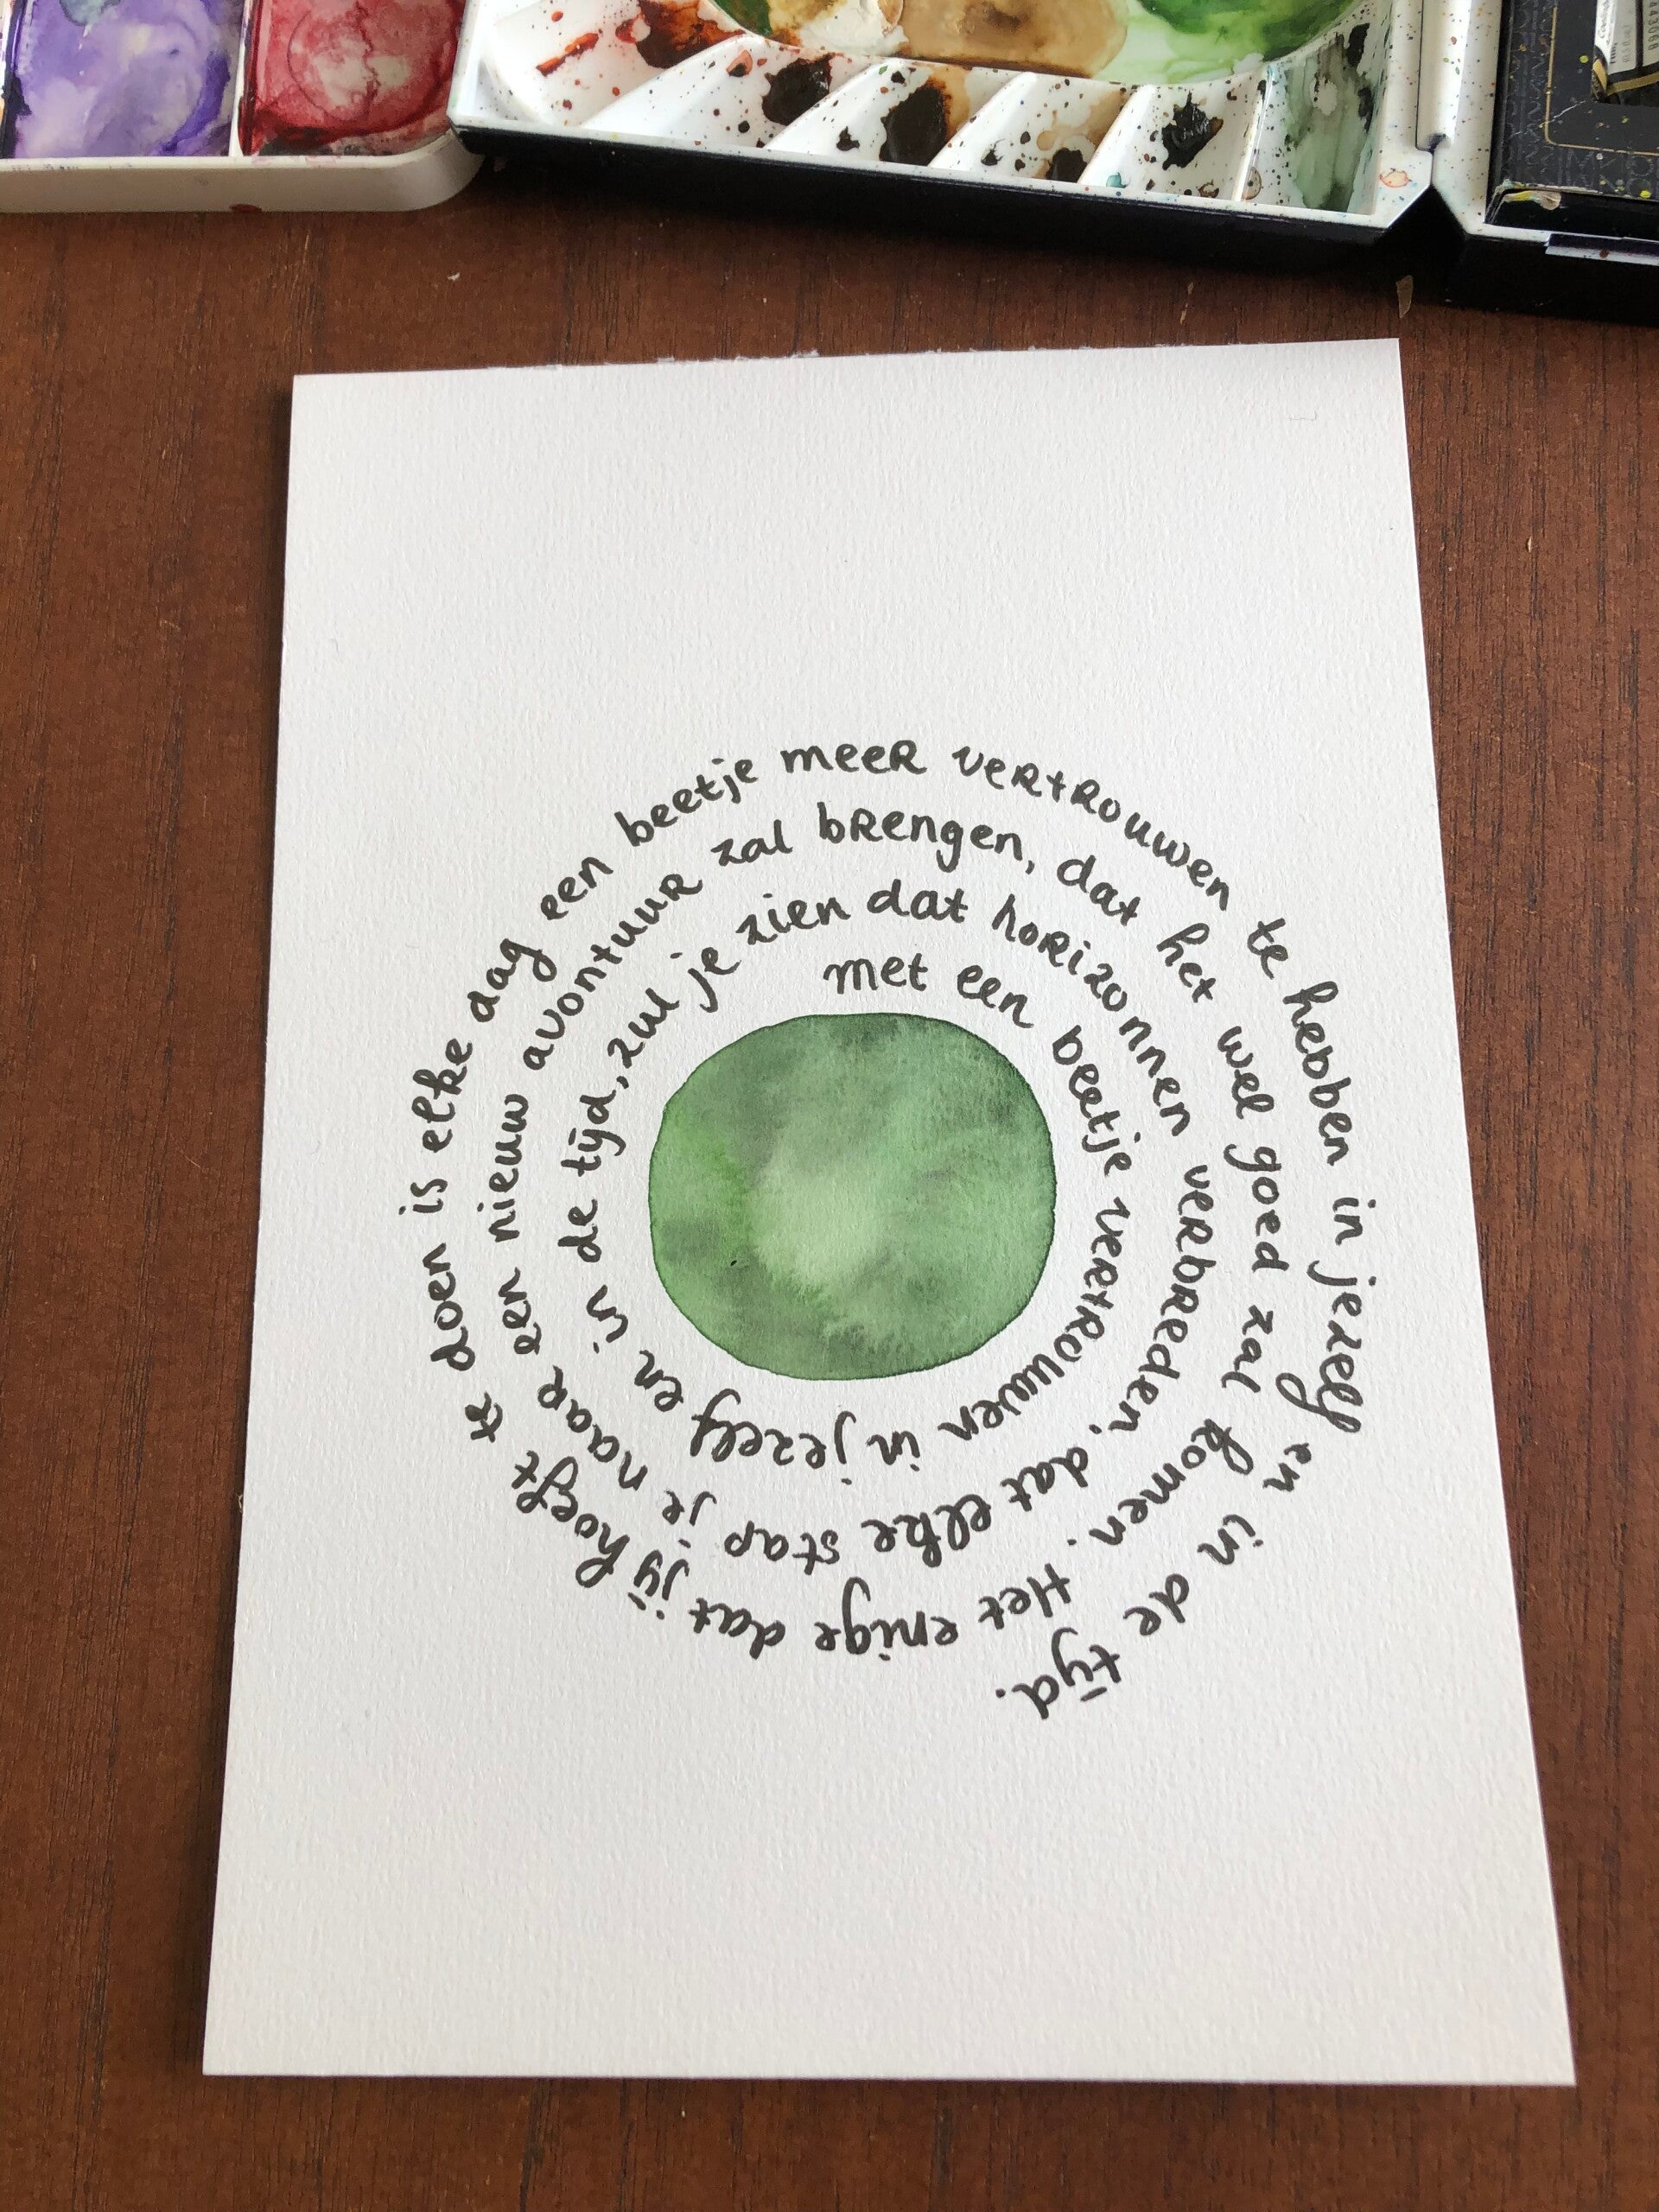 met een beetje vertrouwen in jezelf en in de tijd, zul je zien dat horizonnen verbreden, dat elke stap je naar een nieuw avontuur zal brengen, dat het wel goed zal komen. Het enige dat jij hoeft te doen is elke dag een beetje meer vertrouwen te hebben in jezelf en in de tijd.